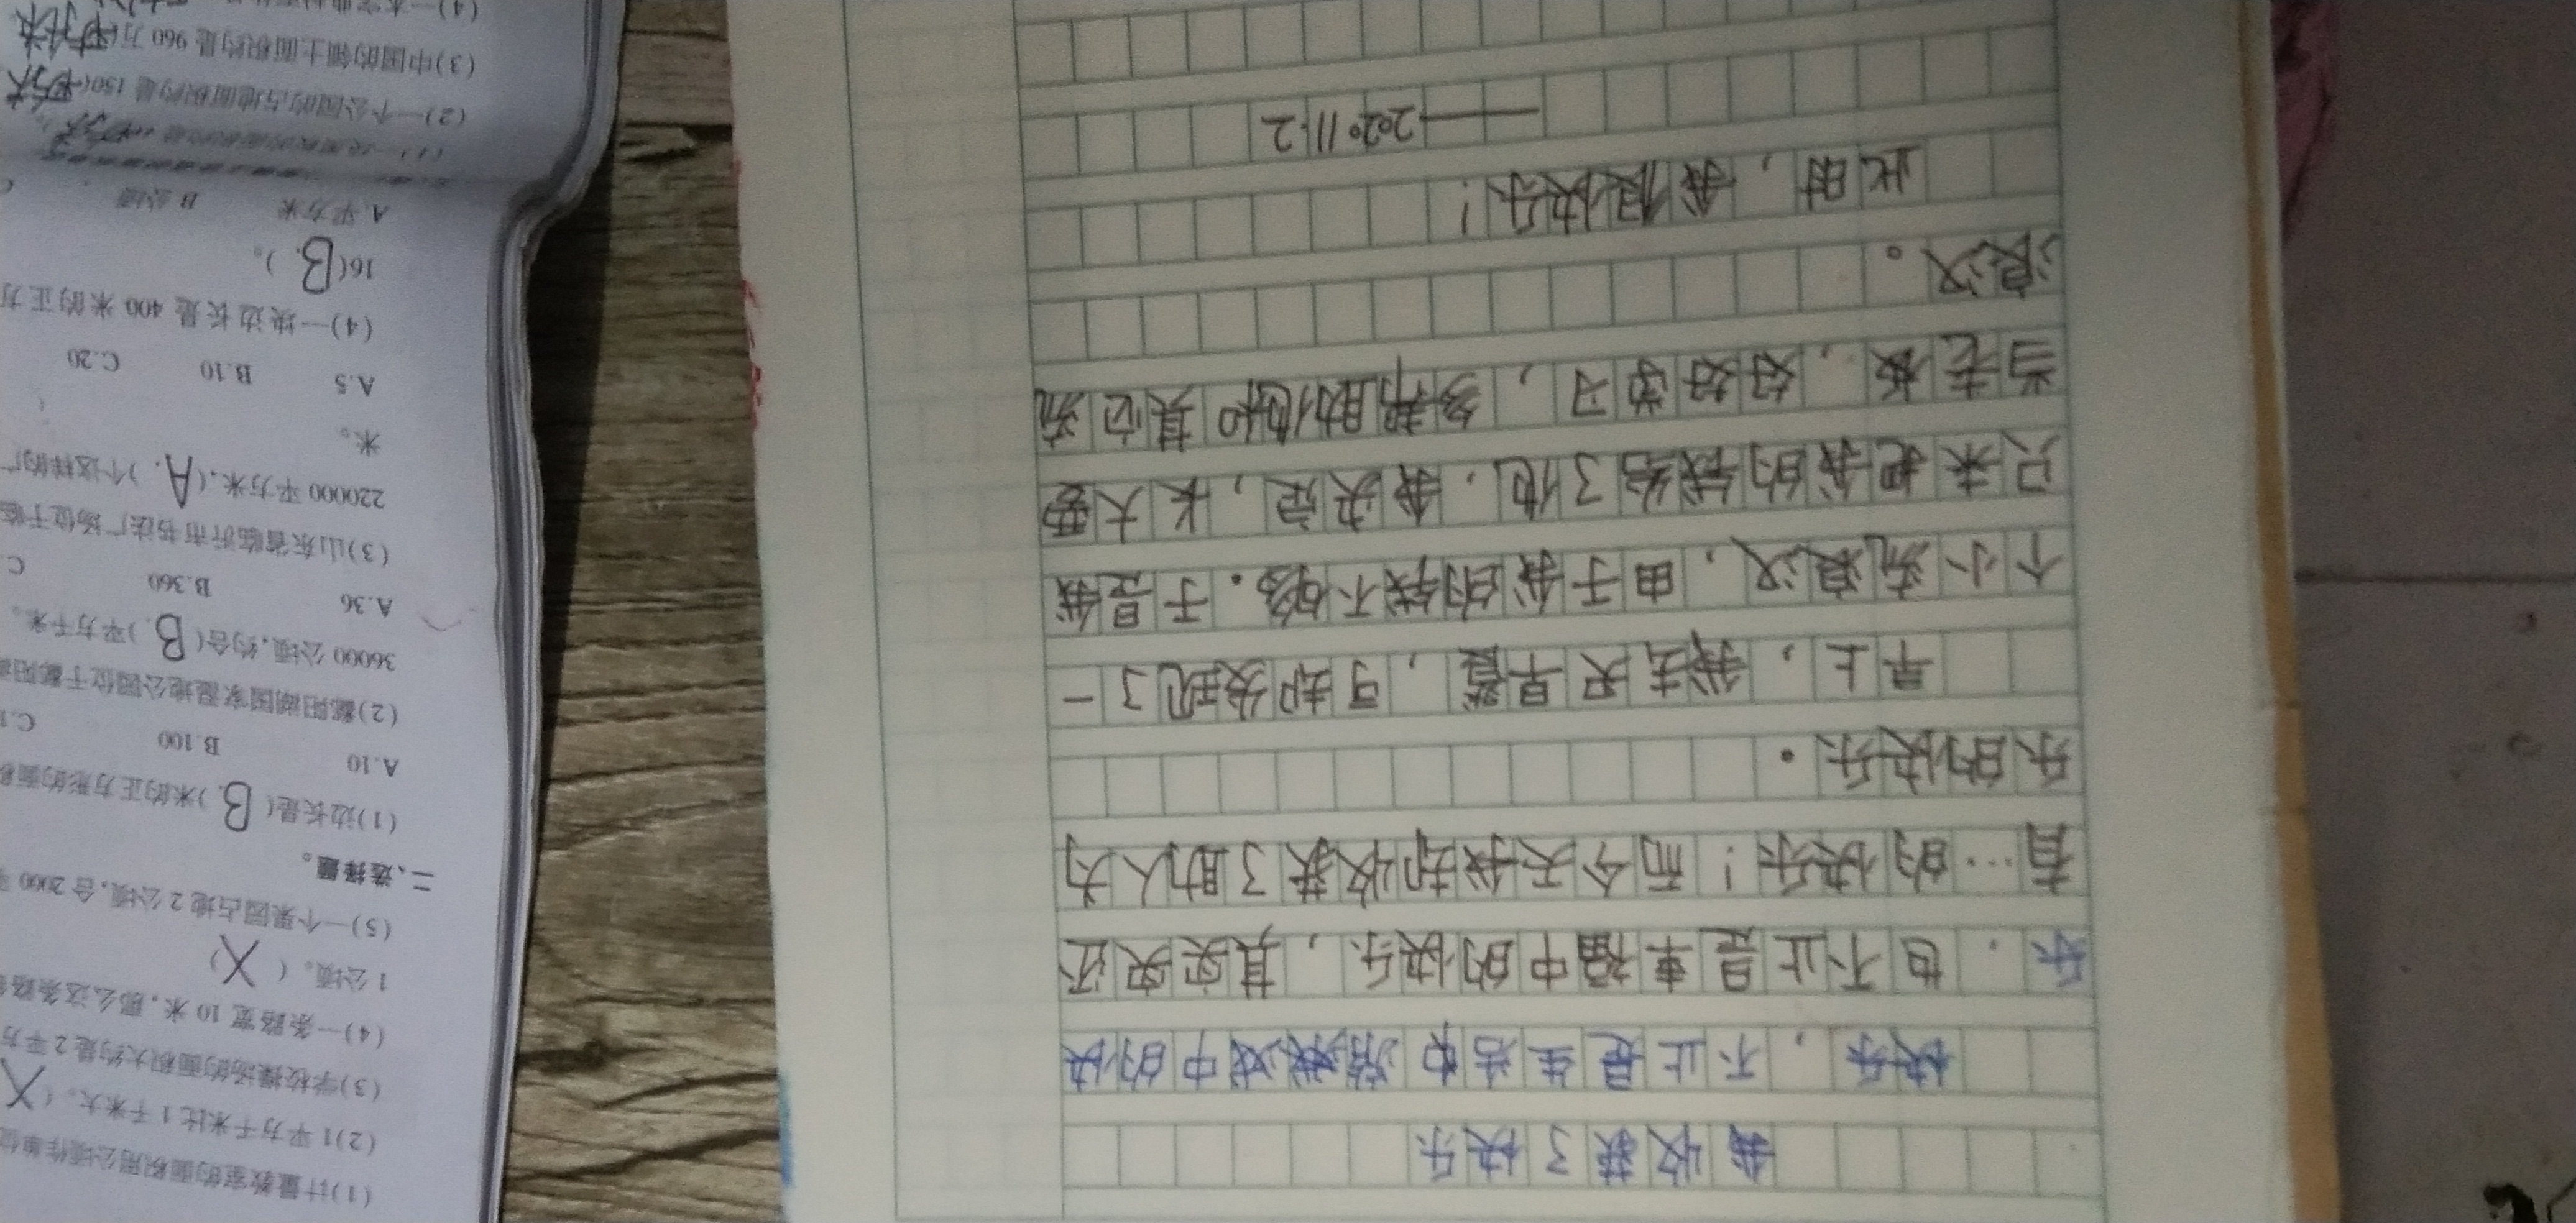 我收获了快乐
快乐，不止是生活中游戏中的快
乐，也不止是幸福中的快乐，其实
有…的快乐！而今天我却收获了助人为
乐的快乐.
早上，我去买早餐，可却发现了一
个小流浪汉，由于我的钱不够.于是我
只来把我的钱给了他，我决定，长大要
当老板，好好学习，多帮助他和其它流
浪汉。
此时，我很快乐！
——2020 11.2
(1)计量教室的面积用公顷作单位
(2)1平方千米比1千米大。( X
(3)学校操场的面积大约是2平方
(4)一条路宽10米,那么这条路
1公顷。( X )
(5)一个果园占地2公顷,合2000
二、选择题。
(1)边长是( B. )米的正方形的面积
A.10 B.100 C.1
(2)鄱阳湖国家湿地公园位于鄱阳
36000公顷,约合( B. )平方千米。
A.36 B.360 C
(3)山东省临沂市书法广场位于临
220000平方米,( A. )个这样的广
米。
A.5 B.10 C.20
(4)一块边长是400米的正方
16( B. )。
A.平方米 B.公顷 C
(2)一个公园的占地面积约是150(平方米
(3)中国的领土面积约是960万(平方千米